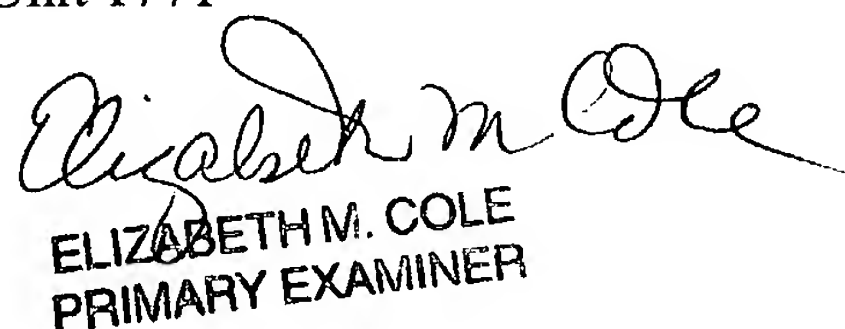 Unit 1771
Elizabeth M Cole
ELIZABETH M. COLE
PRIMARY EXAMINER